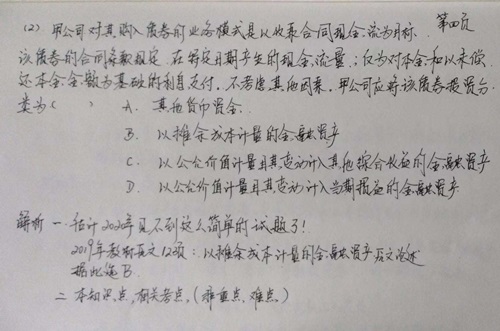 (2) 甲公司对其购入债券的业务模式是以收取合同现金流为目标. 第四页
该债券的合同条款规定, 在特定日期产生的现金流量; 仅为对本金和以未偿
还本金金额为基础的利息支付, 不考虑其他因素, 甲公司应将该债券投资分
类为( ) A. 其他货币资金.
B. 以摊余成本计量的金融资产
C. 以公允价值计量且其变动计入其他综合收益的金融资产
D. 以公允价值计量且其变动计入当期损益的金融资产
解析 一 估计2020年见不到这么简单的试题了!
2019年教材 12项: 以摊余成本计量的金融资产 论述
据此选B.
二 本知识点, 相关考点, (难重点, 难点.)